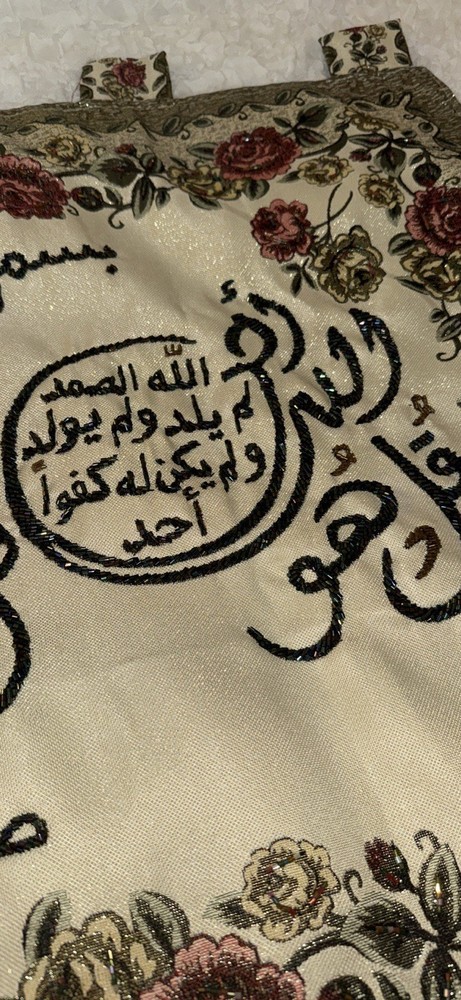 بسم
قل هو الله أحد
الله الصمد
لم يلد ولم يولد
ولم يكن له كفوا
أحد